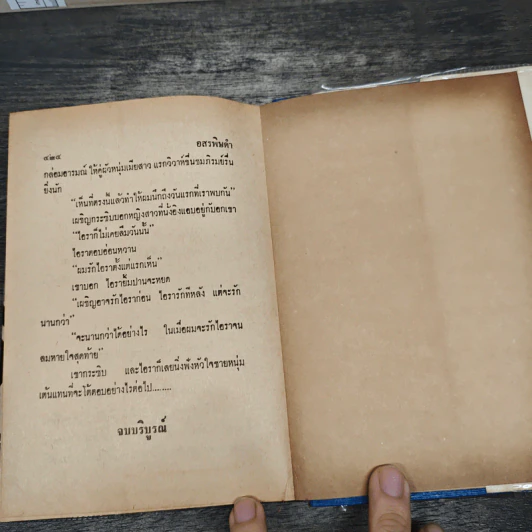 อสรพิษดำ
๔๒๕
กล่อมอารมณ์ ให้คู่ผัวหนุ่มเมียสาว แรกวิวาห์ชื่นชมภิรมย์รื่น
ยิ่งนัก
"เห็นที่ตรงนี้แล้วทำให้ผมนึกถึงวันแรกที่เราพบกัน"
เผชิญกระซิบบอกหญิงสาวที่นั่งอิงแอบอยู่กับอกเขา
"ไอราก็ไม่เคยลืมวันนั้น"
ไอราตอบอ่อนหวาน
"ผมรักไอราตั้งแต่แรกเห็น"
เขาบอก ไอรายิ้มปานจะหยด
"เผชิญอาจรักไอราก่อน ไอรารักทีหลัง แต่จะรัก
นานกว่า"
"จะนานกว่าได้อย่างไร ในเมื่อผมจะรักไอราจน
ลมหายใจสุดท้าย"
เขากระซิบ และไอราก็เลยนิ่งฟังหัวใจชายหนุ่ม
เต้นแทนที่จะโต้ตอบอย่างไรต่อไป........
จบบริบูรณ์